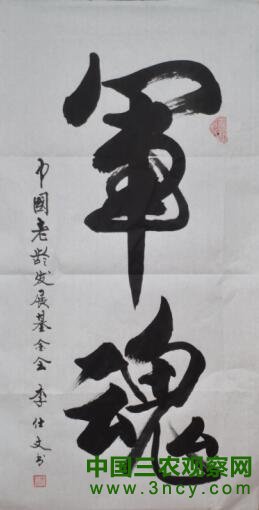 軍魂
中國老龄发展基金会 李仕文书
中国三农观察网
www.3ncy.com